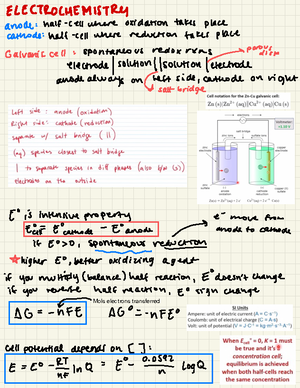 ELECTROCHEMISTRY
anode: half-cell where oxidation takes place
cathode: half-cell where reduction takes place
Galvanic cell: spontaneous redox rxns
porous disk
electrode | solution || solution | electrode
anode always on left side, cathode on right
salt bridge
Left side: anode (oxidation)
Right side: cathode (reduction)
separate w/ salt bridge (||)
(aq) species closest to salt bridge
| to separate species in diff phases (also b/w (s))
electrodes on the outside
Cell notation for the Zn-Cu galvanic cell:
Zn (s)|Zn²⁺ (aq)||Cu²⁺ (aq)|Cu (s)
E° is intensive property
E°cell = E°cathode - E°anode
e⁻ move from anode to cathode
if E°>0, spontaneous reduction
*higher E°, better oxidizing agent
if you multiply (balance) half reaction, E° doesn't change
if you reverse half reaction, E° sign change
Mols electrons transferred
ΔG = -nFE
ΔG° = -nFE°
SI Units
Ampere: unit of electric current (A = C s⁻¹)
Coulomb: unit of electrical charge (C = A·s)
Volt: unit of potential (V = J C⁻¹ = kg m² s⁻³ A⁻¹)
Cell potential depends on [ ]:
E = E° - RT/nF ln Q = E° - 0.0592/n log Q
When E°cell = 0, K = 1
must be true and it's a
concentration cell;
equilibrium is achieved
when both half cells reach
the same concentration